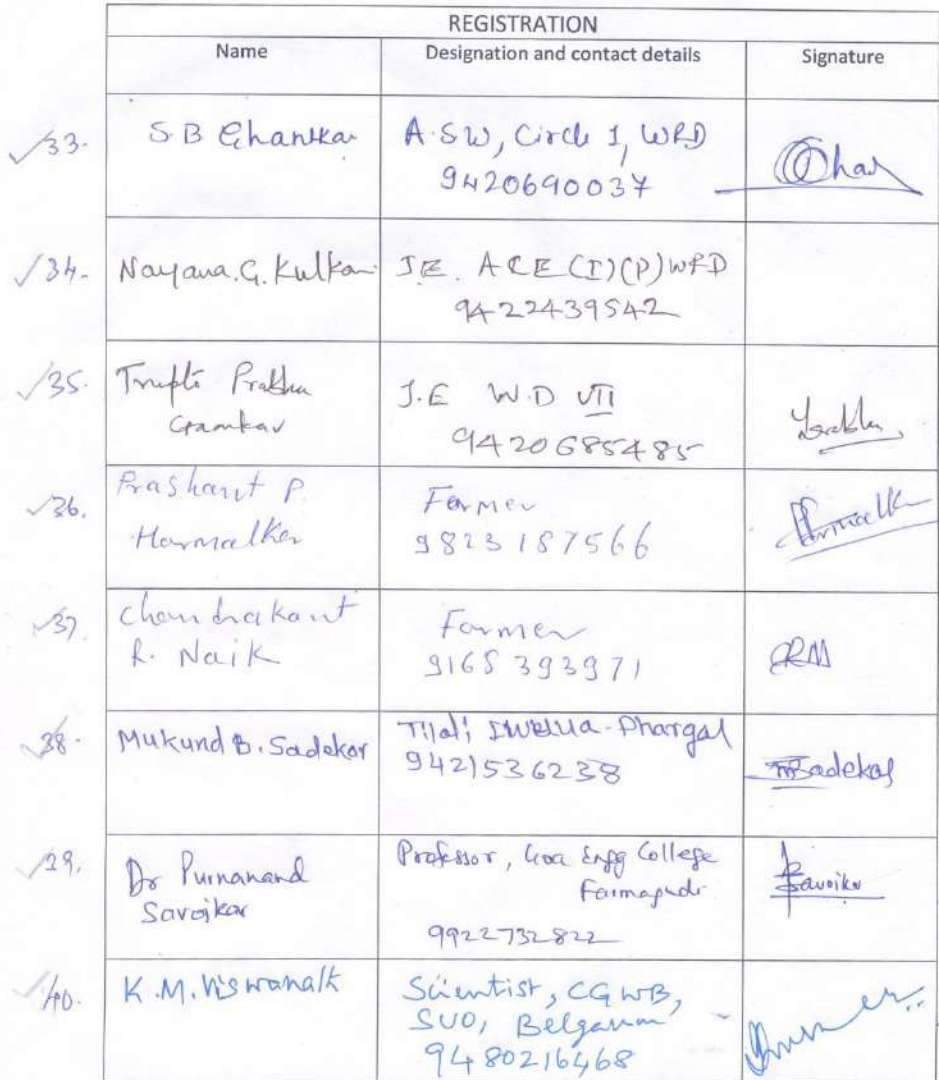 REGISTRATION
Name Designation and contact details Signature
33. S B Ghantkar A.SW, Circle 1, WRD
9420690037
34. Nayana.G. Kulkar J.E. ACE (I)(P) WRD
9422439542
35. Trupti Prabhu J.E W.D VII
Gaonkar 9420685485
36. Prashant P. Farmer
Harmalkar 9823187566
37. Chandrakant Farmer
R. Naik 9165393971
CRN
38. Mukund B. Sadekar Tilali Dhargal
9421536238
Sadekar
39. Dr Purnanand Professor, Goa Engg College
Savoikar Farmagudi
9922732822
Savoikar
40. K.M. Viswanath Scientist, CGWB,
SUO, Belgaum
9480216468